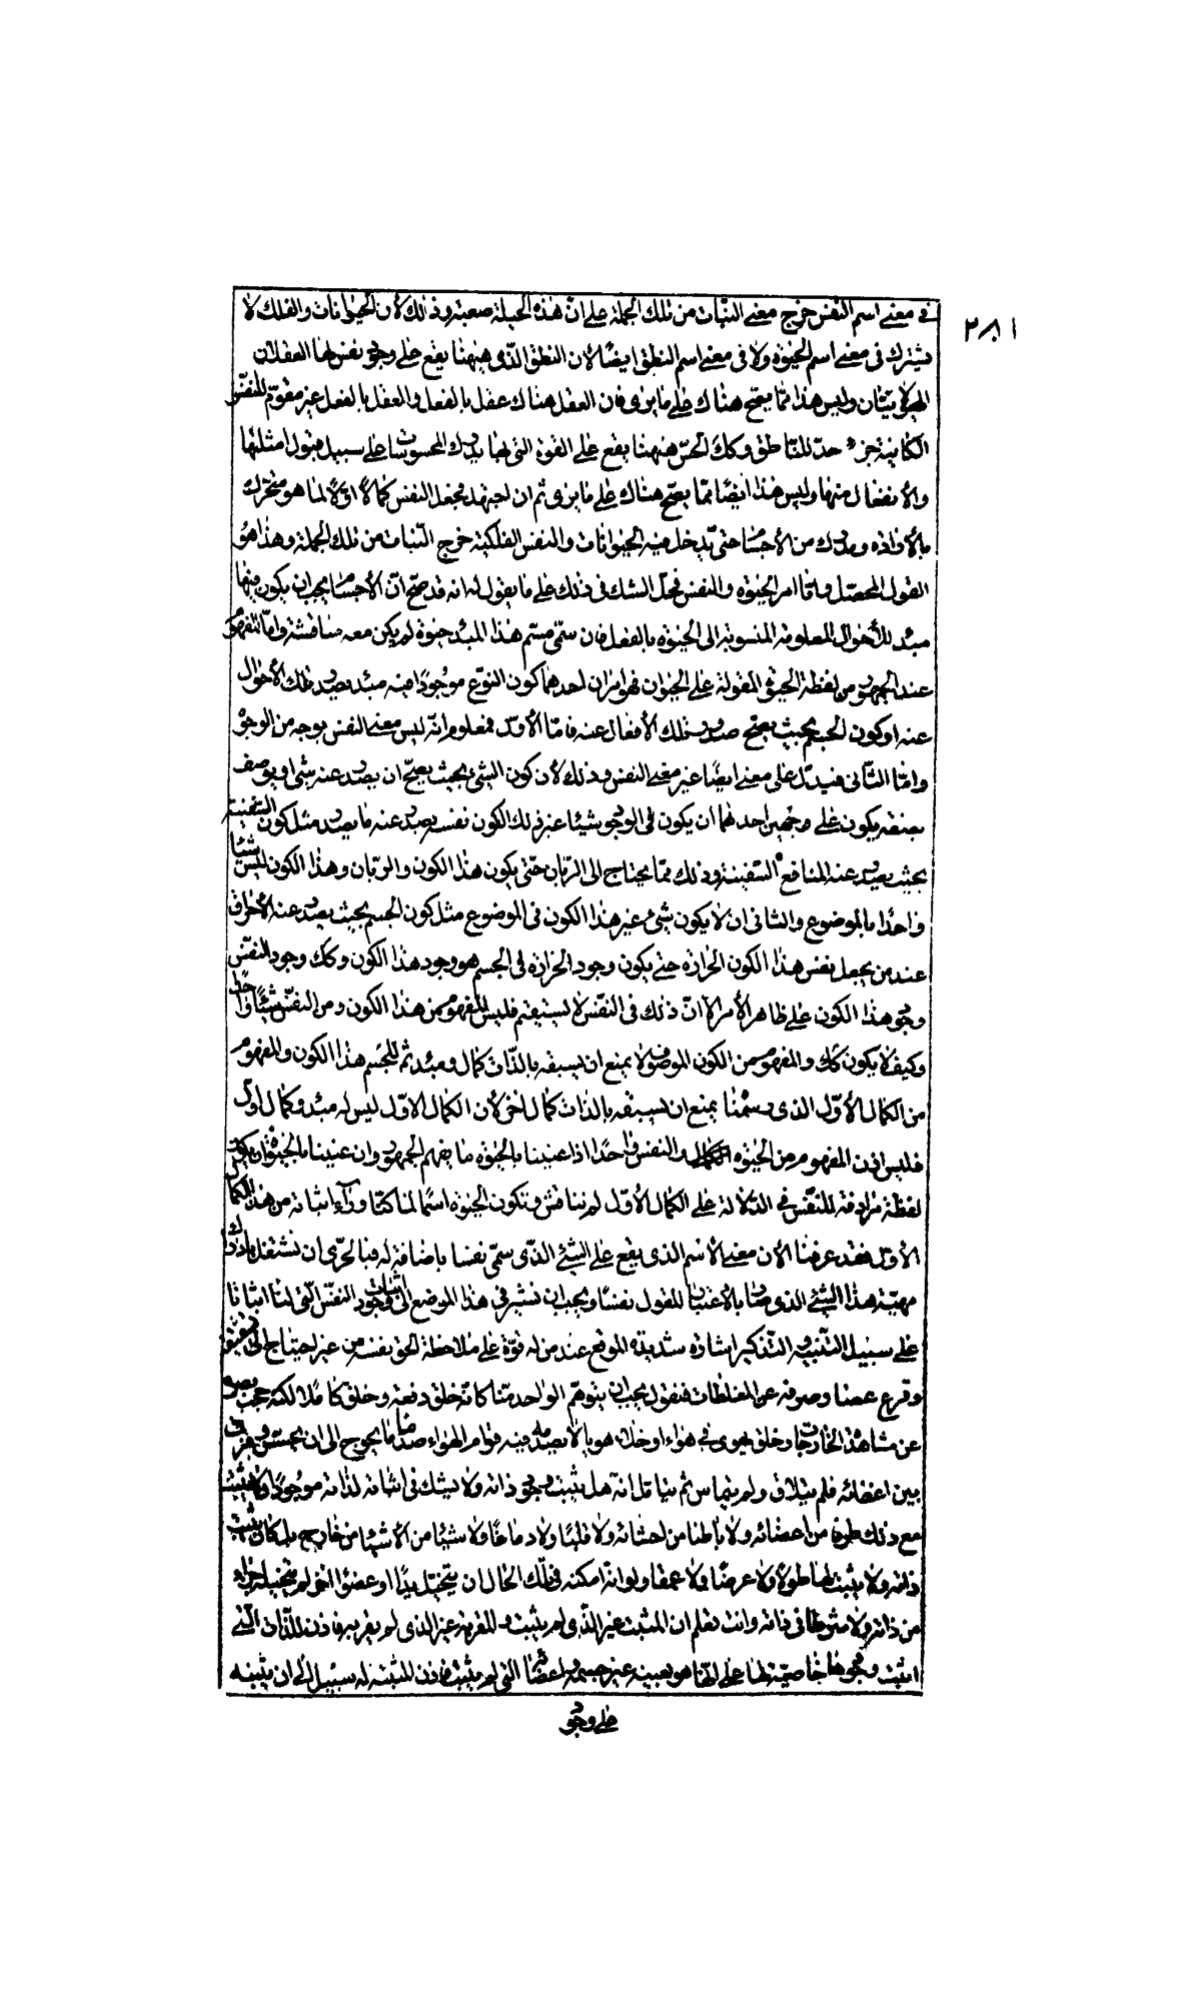 ٢٨١
في معنى اسم النفس خرج معنى النبات من تلك الجملة على ان هذه الحيلة صعبة وذلك لأن الحيوانات والفلك لا
يشترك في معنى اسم الحيوة ولا في معنى اسم النطق ايضًا لأن النطق الذي هيهنا يقع على وجود نفس لها العقلان
الهيولانيان وليس هذا مما يصح هناك على ما يرى فان العقل هناك عقل بالفعل والعقل بالفعل غير مقوّم للنفس
الكاينة جزء حد للناطق وكك الحس هيهنا يقع على القوة التي بها يدرك المحسوسات على سبيل قبول امثلتها
والأنفعال منها وليس هذا ايضًا مما يصح هناك على ما يرى ثم ان اجتهد فجعل النفس كمالًا اوّلًا لما هو متحرك
بالأرادة ومدرك من الأجسام حتى تدخل فيه الحيوانات والنفس الفلكية خرج النبات من تلك الجملة وهذا هو
القول المحصّل واما امر الحيوة والنفس فحل الشك في ذلك على ما يقول له انه قد صح ان الأجسام يجب ان يكون فيها
مبدء للأحوال المعلومة المنسوبة الى الحيوة بالفعل فان سمّى مسمّ هذا المبدء حيوة لم يكن معه مناقشة وامّا المفهوم
عند الجمهور من لفظة الحيوة المقولة على الحيوان فهو امران احدهما كون النوع موجودًا فيه مبدء يصدر تلك الأحوال
عنه او كون الجسم بحيث يصح صدور تلك الأفعال عنه فامّا الأوّل فمعلوم انّه ليس معنى النفس بوجه من الوجوه
وامّا الثاني فيدلّ على معنى ايضًا غير معنى النفس وذلك لأن كون الشيء بحيث يصحّ ان يصدر عنه شيء او يوصف
بصفة يكون على وجهين احدهما ان يكون في الوجود شيئا غير ذلك الكون نفسه يصدر عنه ما يصدر مثل كون السفينة
بحيث يصدر عنه المنافع السفينية وذلك ممّا يحتاج الى الربان حتى يكون هذا الكون والربان وهذا الكون ليس شيئا
واحدًا بالموضوع والثاني ان لا يكون شيء غير هذا الكون في الموضوع مثل كون الجسم بحيث يصدر عنه الأحراق
عند من يجعل نفس هذا الكون الحرارة حتى يكون وجود الحرارة في الجسم هو وجود هذا الكون وكك وجود النفس
وجود هذا الكون على ظاهر الأمر الا انّ ذلك في النفس لا يستقيم فليس المفهوم من هذا الكون ومن النفس شيئًا واحدًا
وكيف لا يكون كك والمفهوم من الكون الموصوف لا يمنع ان يسبقه بالذات كمال ومبدء ثم للجسم هذا الكون والمفهوم
من الكمال الأوّل الذي رسمنا يمنع ان يسبقه بالذات كمال اخر لأن الكمال الاوّل ليس له مبدء وكمال اوّل
فليس اذن المفهوم من الحيوة والنفس واحدًا اذا عنينا بالحيوة ما يفهم الجمهور وان عنينا بالحيوة ان يكون
لفظة مرادفة للنفس في الدلالة على الكمال الأوّل لم نناقش وتكون الحيوة اسمًا لما كنّا وراء اثباته من هذا الكمال
الأوّل فقد عرفنا الأن معنى الأسم الذي يقع على الشيء الذي سمّي نفسا باضافة له فبالحرّي ان نشتغل بادراك
مهيّة هذا الشيء الذي صار بالأعتبار المقول نفسًا ويجب ان نشير في هذا الموضع الى اثبات وجود النفس التي لنا اثباتا
على سبيل التنبيه والتذكير اشارة شديدة الموقع عند من له قوّة على ملاحظة الحق نفسه من غير احتياج الى تثقيفه
وقرع عصا وصرفه عن المغلطات فنقول يجب ان يتوهّم الواحد منّا كانّه خلق دفعة وخلق كاملا لكنه حجب بصره
عن مشاهدة الخارجات وخلق يهوى في هواء او خلاء هويا لا يصدمه فيه قوام الهواء صدما ما يحوج الى ان يحس وفرق
بين اعضائه فلم يتلاق ولم يتماس ثم يتامّل انه هل يثبت وجود ذاته ولا يشك في اثباته لذاته موجودًا ولا يثبت
مع ذلك طرفا من اعضائه ولا باطنا من احشائه ولا قلبًا ولا دماغًا ولا شيئا من الأشياء من خارج بل كان يثبت
ذاته ولا يثبت لها طولًا ولا عرضًا ولا عمقا ولو انّه امكنه في تلك الحال ان يتخيّل يدًا او عضوًا اخر لم يتخيله جزء
من ذاته ولا شرطا في ذاته وانت تعلم ان المثبت غير الذي لم يثبت والمقربه غير الذي لم يقربه فاذن للذات التي
اثبت وجودها خاصيّة لها على انّها هو بعينه غير جسمه واعضائه التي لم يثبت فاذن المثبته له سبيل الى ان يثبته
على وجود